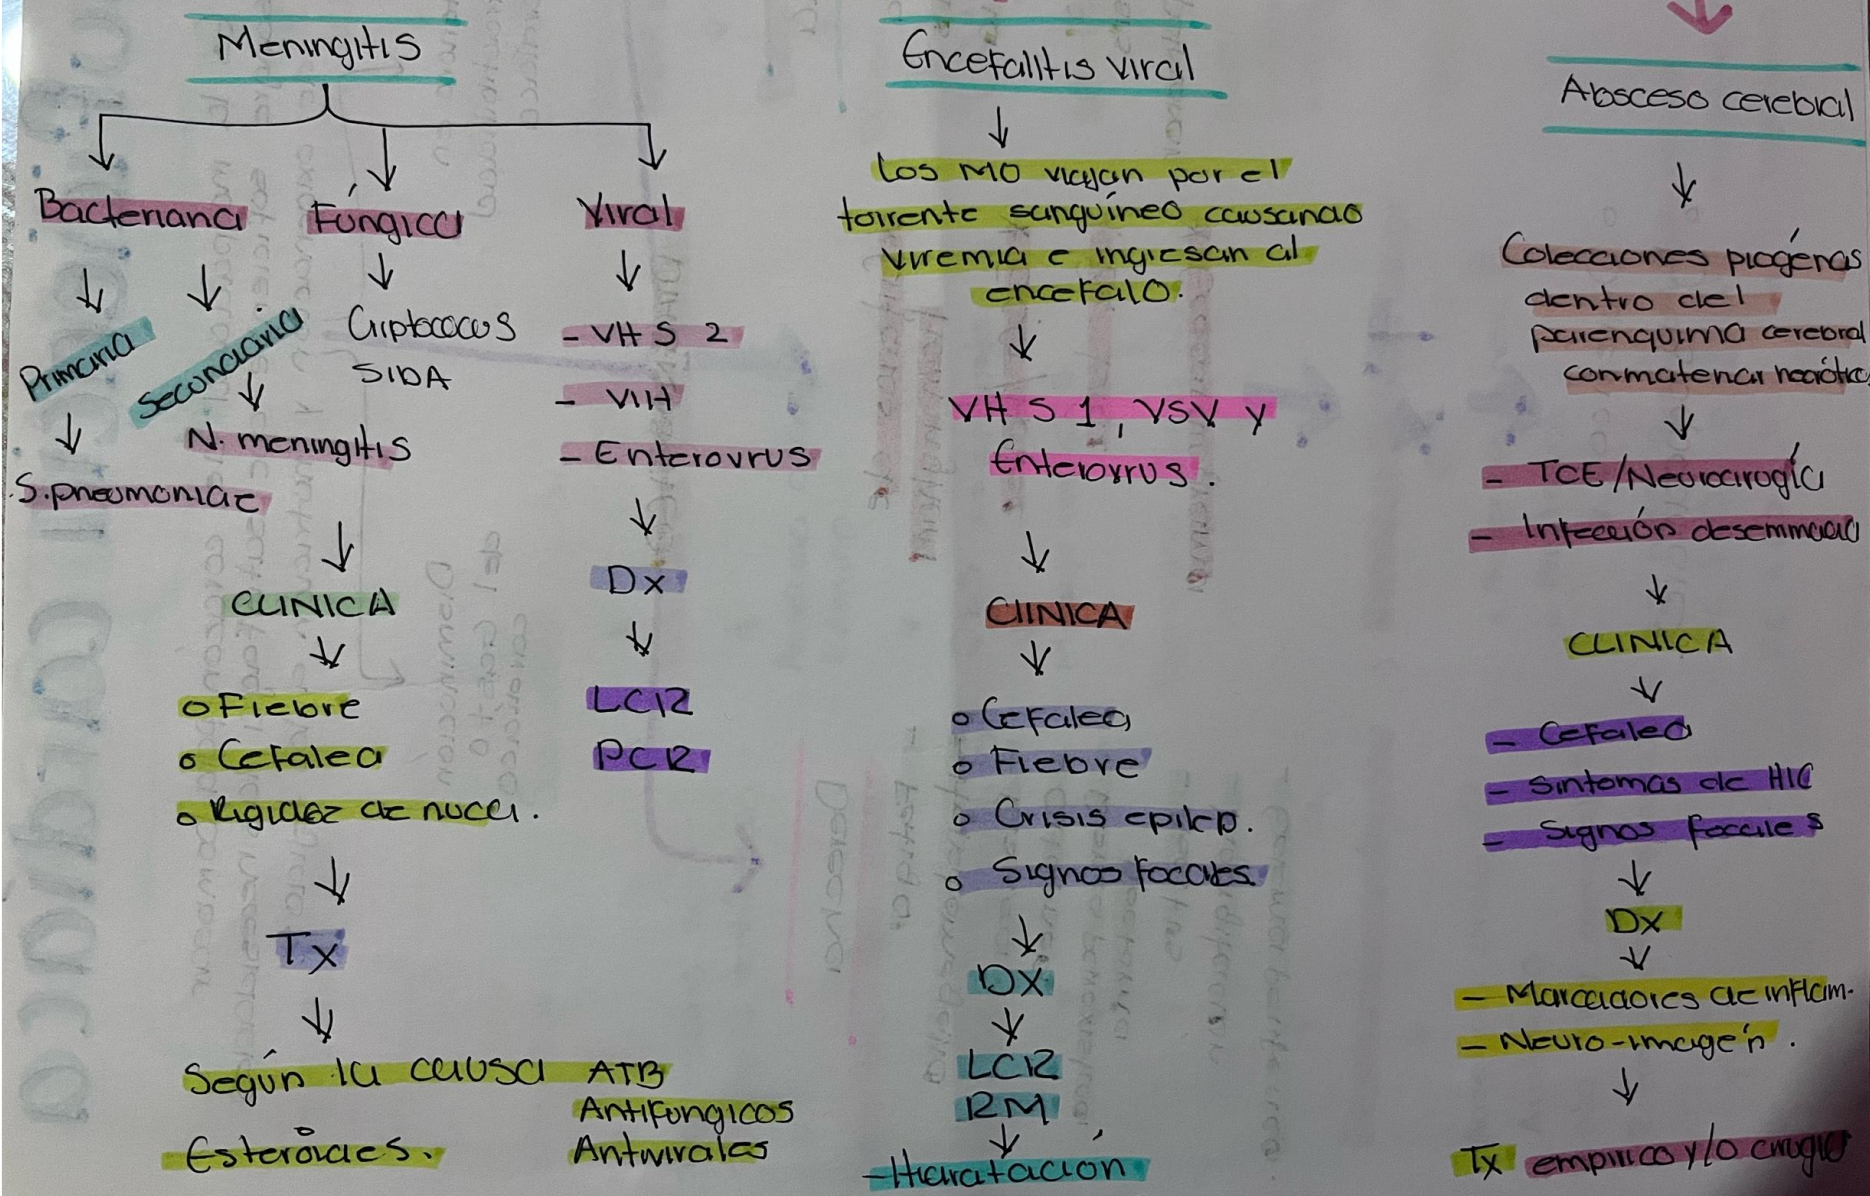 Meningitis
Bacteriana
Fúngica
Viral
Primaria
Secundaria
Criptococus
SIDA
- VHS 2
- VIH
- Enterovrus
N. meningitis
S. pneumoniae
CLINICA
Dx
LCR
PCR
o Fiebre
o Cefalea
o Rigidez de nuca.
Tx
Según la causa ATB
Antifungicos
Antivirales
Esteroides.
Encefalitis viral
Los MO viajan por el
torrente sanguíneo causando
viremia e ingresan al
encefalo.
VHS 1, VSV y
Enterovrus.
CLINICA
o Cefalea
o Fiebre
o Crisis epilep.
o Signos focales.
DX
LCR
RM
- Hidratación
Absceso cerebral
Colecciones piógenas
dentro del
parenquima cerebral
con material necrótico
- TCE/Neurocirogía
- Infección
CLINICA
- Cefalea
- Sintomas de HIC
- Signos focales
DX
- Marcadores de inflam.
- Neuro-imagén.
Tx empirico y/o cirugia